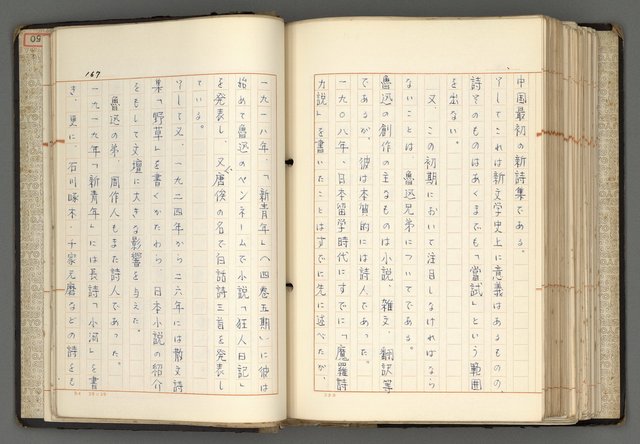 中国最初の新詩集である。
そしてこれは新文学史上に意義はあるものの
詩そのものはあくまでも「嘗試」という範囲
を出ない。
又、この初期において注目しなければなら
ないことは、魯迅兄弟についてである。
魯迅の創作の主なものは小説、雑文、翻訳等
であるが、彼は本質的には詩人であった。
一九〇八年、日本留学時代にすでに「魔羅詩
力説」を書いたことはすでに先に述べたが、
167
一九一八年、「新青年」(四巻五期)に彼は
始めて魯迅のペンネームで小説「狂人日記」
を発表し、又唐俟の名で白話詩三首を発表し
ている。
そして又、一九二四年から二六年には散文詩
集「野草」を書くかたわら、日本小説の紹介
をもして文壇に大きな影響を与えた。
魯迅の弟、周作人もまた詩人であった。
一九一九年「新青年」には長詩「小河」を書
き、更に、石川啄木、千家元麿などの詩をも
50